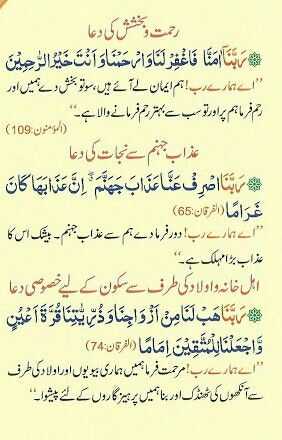 رحمت و بخشش کی دعا
رَبَّنَا اٰمَنَّا فَاغْفِرْ لَنَا وَارْحَمْنَا وَ اَنْتَ خَيْرُ الرّٰحِمِيْنَ
’’اے ہمارے رب! ہم ایمان لے آئے ہیں، سو تو بخش دے ہمیں اور
رحم فرما ہم پر اور تو سب سے بہتر رحم فرمانے والا ہے۔‘‘
(المؤمنون:109)
عذاب جہنم سے نجات کی دعا
رَبَّنَا اصْرِفْ عَنَّا عَذَابَ جَهَنَّمَ ۖ اِنَّ عَذَابَهَا كَانَ
غَرَامًا (الفرقان:65)
’’اے ہمارے رب! دور فرما دے ہم سے عذاب جہنم۔ بیشک اس کا
عذاب بڑا مہلک ہے۔‘‘
اہل خانہ و اولاد کی طرف سے سکون کے لیے خصوصی دعا
رَبَّنَا هَبْ لَنَا مِنْ اَزْوَاجِنَا وَ ذُرِّيّٰتِنَا قُرَّةَ اَعْيُنٍ
وَّاجْعَلْنَا لِلْمُتَّقِيْنَ اِمَامًا (الفرقان:74)
’’اے ہمارے رب! مرحمت فرما ہمیں ہماری بیویوں اور اولاد کی طرف
سے آنکھوں کی ٹھنڈک اور بنا ہمیں پرہیز گاروں کے لئے پیشوا۔‘‘